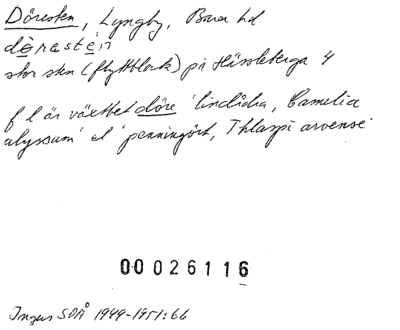 Döresten, Lyngby, Bara hd
dørastén
stor sten (flyttblock) på Hässleberga 4
f l är växtbet döre 'lindådra, Camelia
alyssum' el 'penningört, Thlaspi arvense'
00 026116
Ingers SOÅ 1949-1951:66